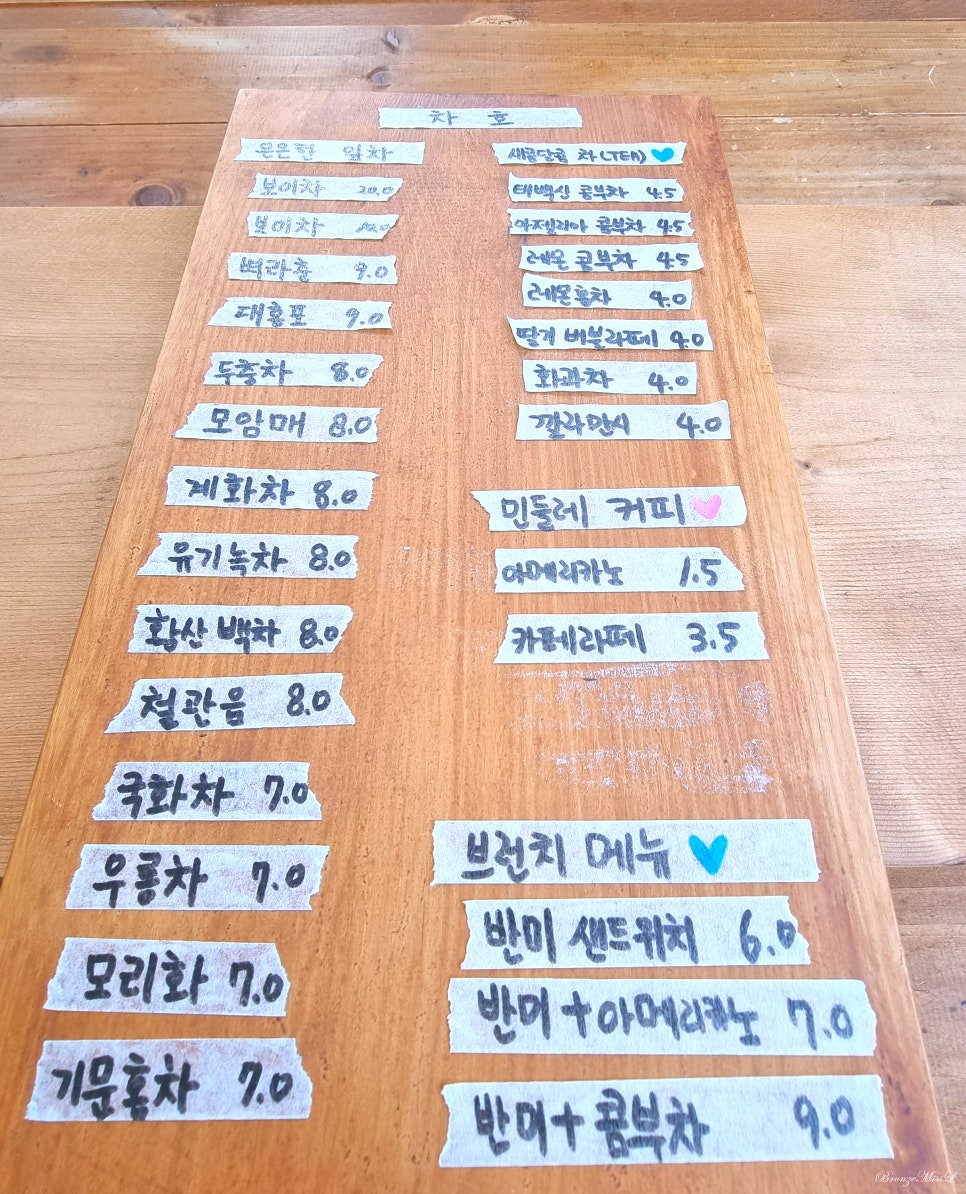 차 호
은은한 잎차
보이차 20.0
보이차
벽라춘 9.0
대홍포 9.0
두충차 8.0
모암매 8.0
계화차 8.0
유기녹차 8.0
황산 백차 8.0
철관음 8.0
국화차 7.0
우롱차 7.0
모리화 7.0
기문홍차 7.0
새콤달콤 차(TEA)
태백산 콤부차 4.5
아젤리아 콤부차 4.5
레몬 콤부차 4.5
레몬홍차 4.0
딸기 버블라떼 4.0
화과차 4.0
깔라만시 4.0
민들레 커피
아메리카노 1.5
카페라떼 3.5
브런치 메뉴
반미 샌드위치 6.0
반미+아메리카노 7.0
반미+콤부차 9.0
BronzeMissL